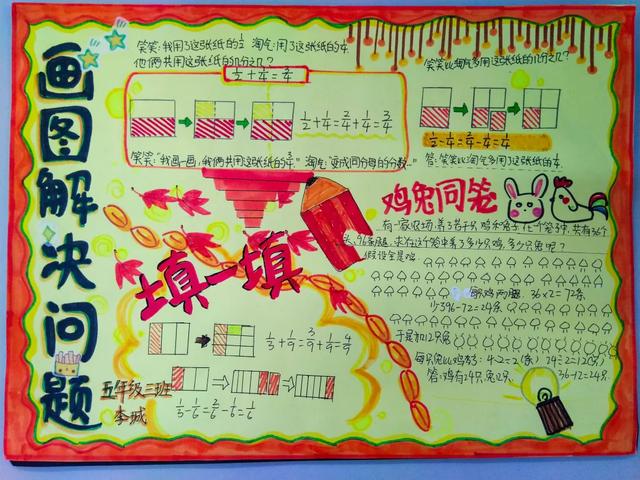 画图解决问题
五年级三班
李斌
笑笑:我用了这张纸的1/2 淘气:用了这张纸的1/4
他俩共用这张纸的几分之几?
1/2+1/4=3/4
1/2+1/4=2/4+1/4=3/4
笑笑:"我画一画,我俩共用这张纸的3/4" 淘气:"变成同分母的分数…"
笑笑比淘气多用这张纸的几分之几?
1/2-1/4=2/4-1/4=1/4
答:笑笑比淘气多用了这张纸的1/4.
鸡兔同笼
有一家农场,养了若干只鸡和兔子在一个笼子里,共有36个
头,96条腿,求
这个笼中养了多少只鸡,多少只兔呢?
假设全是鸡
鸡两腿. 36×2=72条
少了96-72=24条
于是加12只兔
每只兔比鸡多:4-2=2(条) 24÷2=12(只)
答:鸡有24只,兔12只. 36-12=24只
填一填
1/3+1/9=3/9+1/9=4/9
1/3-1/6=2/6-1/6=1/6